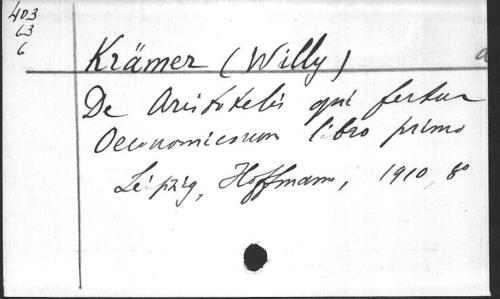 403
63
6
Krämer (Willy)
De Aristotelis qui fertur
Oeconomicorum libro primo
Leipzig, Hoffmann, 1910, 8°